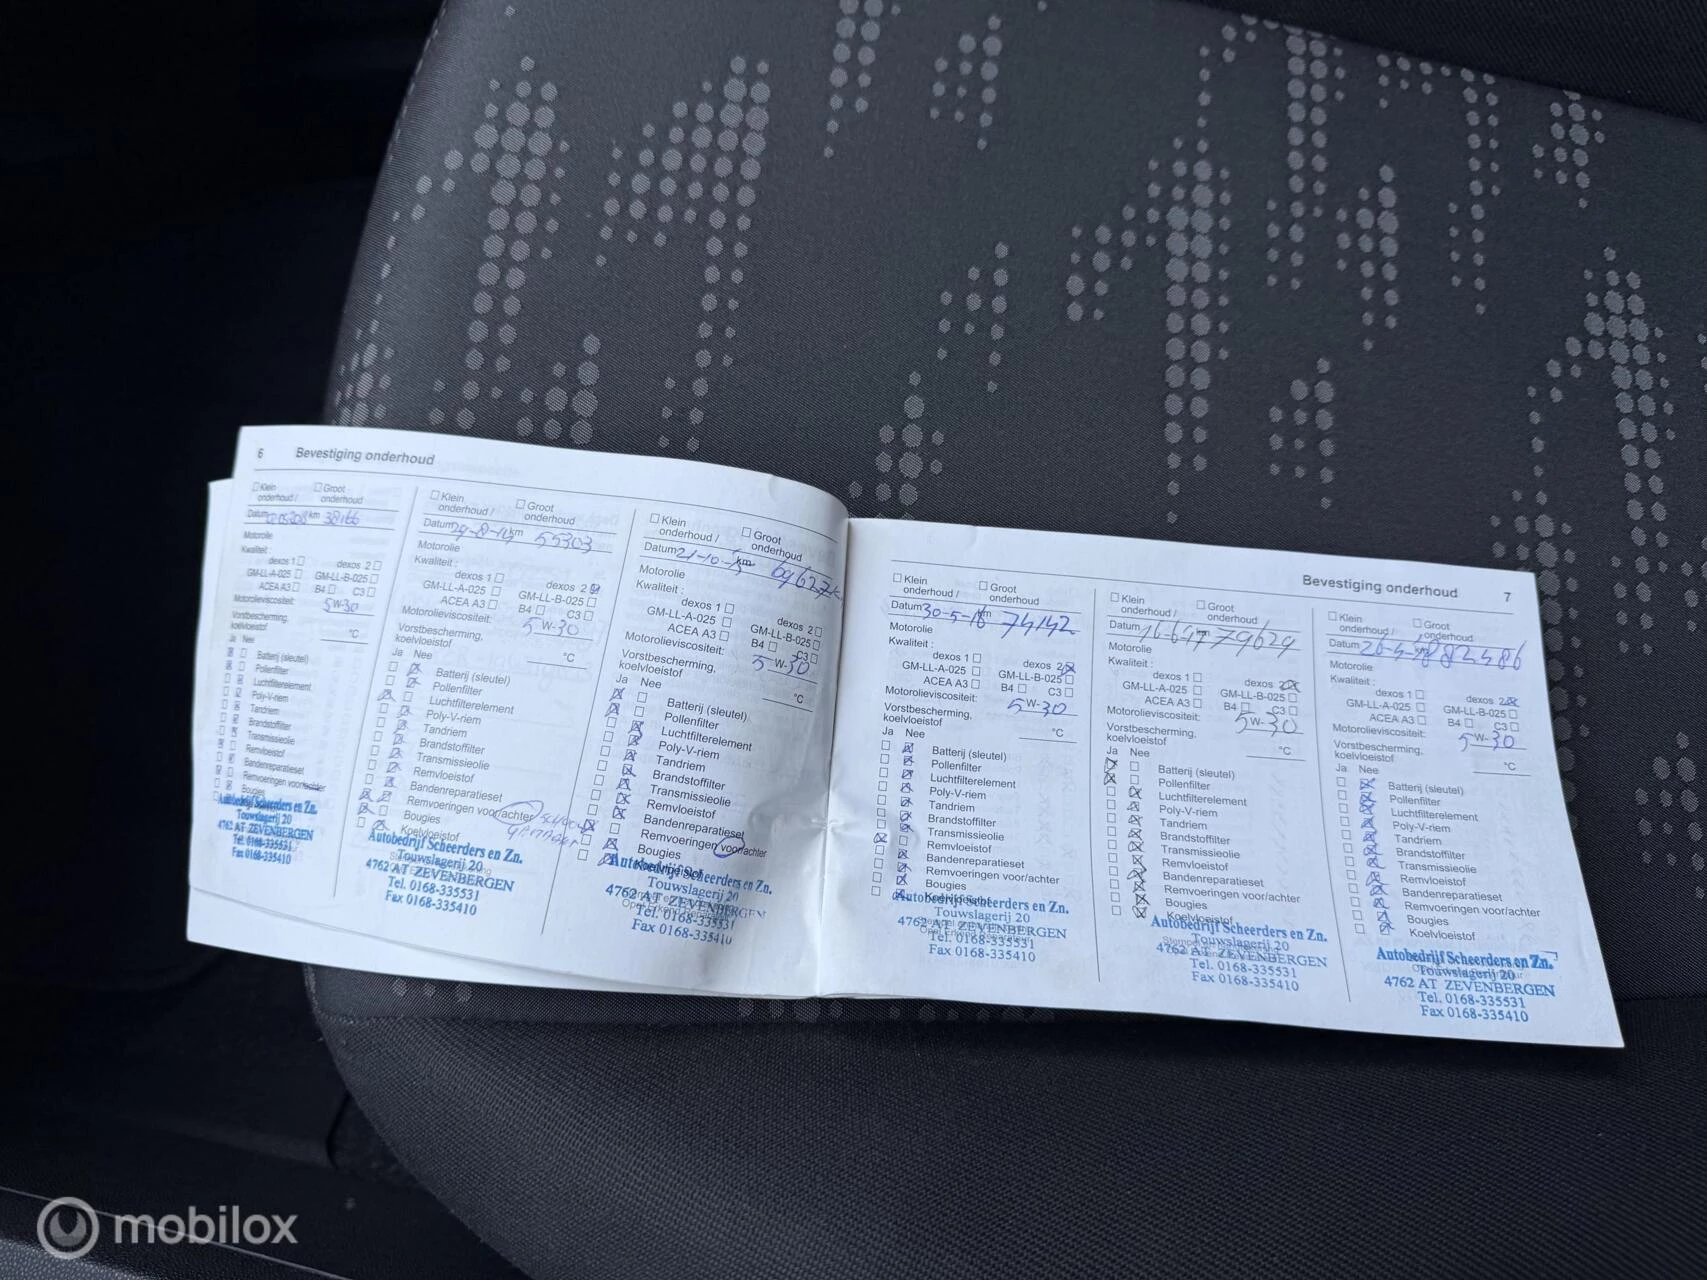 6 Bevestiging onderhoud
Klein onderhoud / Groot onderhoud
Datum km 38166
Motorolie
Kwaliteit:
dexos 1 dexos 2
GM-LL-A-025 GM-LL-B-025
ACEA A3 B4 C3
Motorolieviscositeit: 5 W-30
Vorstbescherming,
koelvloeistof °C
Ja Nee
Batterij (sleutel)
Pollenfilter
Luchtfilterelement
Poly-V-riem
Tandriem
Brandstoffilter
Transmissieolie
Remvloeistof
Bandenreparatieset
Remvoeringen voor/achter
Bougies
Autobedrijf Scheerders en Zn.
Touwslagerij 20
4762 AT ZEVENBERGEN
Tel. 0168-335531
Fax 0168-335410
Klein onderhoud / Groot onderhoud
Datum 29-8-14 km 55303
Motorolie
Kwaliteit :
dexos 1 dexos 2
GM-LL-A-025 GM-LL-B-025
ACEA A3 B4 C3
Motorolieviscositeit: 5 W-30
Vorstbescherming,
koelvloeistof °C
Ja Nee
Batterij (sleutel)
Pollenfilter
Luchtfilterelement
Poly-V-riem
Tandriem
Brandstoffilter
Transmissieolie
Remvloeistof
Bandenreparatieset
Remvoeringen voor/achter
Bougies
Koelvloeistof
Autobedrijf Scheerders en Zn.
Touwslagerij 20
4762 AT ZEVENBERGEN
Tel. 0168-335531
Fax 0168-335410
Klein onderhoud / Groot onderhoud
Datum 21-10-15 km 69627
Motorolie
Kwaliteit :
dexos 1 dexos 2
GM-LL-A-025 GM-LL-B-025
ACEA A3 B4 C3
Motorolieviscositeit: 5 W-30
Vorstbescherming,
koelvloeistof °C
Ja Nee
Batterij (sleutel)
Pollenfilter
Luchtfilterelement
Poly-V-riem
Tandriem
Brandstoffilter
Transmissieolie
Remvloeistof
Bandenreparatieset
Remvoeringen voor/achter
Bougies
Koelvloeistof
Autobedrijf Scheerders en Zn.
Touwslagerij 20
4762 AT ZEVENBERGEN
Tel. 0168-335531
Fax 0168-335410
Bevestiging onderhoud 7
Klein onderhoud / Groot onderhoud
Datum 30-5-16 km 74142
Motorolie
Kwaliteit :
dexos 1 dexos 2
GM-LL-A-025 GM-LL-B-025
ACEA A3 B4 C3
Motorolieviscositeit: 5 W-30
Vorstbescherming,
koelvloeistof °C
Ja Nee
Batterij (sleutel)
Pollenfilter
Luchtfilterelement
Poly-V-riem
Tandriem
Brandstoffilter
Transmissieolie
Remvloeistof
Bandenreparatieset
Remvoeringen voor/achter
Bougies
Koelvloeistof
Autobedrijf Scheerders en Zn.
Touwslagerij 20
4762 AT ZEVENBERGEN
Tel. 0168-335531
Fax 0168-335410
Klein onderhoud / Groot onderhoud
Datum 16-6-17 km 79629
Motorolie
Kwaliteit :
dexos 1 dexos 2
GM-LL-A-025 GM-LL-B-025
ACEA A3 B4 C3
Motorolieviscositeit: 5 W-30
Vorstbescherming,
koelvloeistof °C
Ja Nee
Batterij (sleutel)
Pollenfilter
Luchtfilterelement
Poly-V-riem
Tandriem
Brandstoffilter
Transmissieolie
Remvloeistof
Bandenreparatieset
Remvoeringen voor/achter
Bougies
Koelvloeistof
Autobedrijf Scheerders en Zn.
Touwslagerij 20
4762 AT ZEVENBERGEN
Tel. 0168-335531
Fax 0168-335410
Klein onderhoud / Groot onderhoud
Datum 20-4-18 82486
Motorolie
Kwaliteit :
dexos 1 dexos 2
GM-LL-A-025 GM-LL-B-025
ACEA A3 B4 C3
Motorolieviscositeit: 5 W-30
Vorstbescherming,
koelvloeistof °C
Ja Nee
Batterij (sleutel)
Pollenfilter
Luchtfilterelement
Poly-V-riem
Tandriem
Brandstoffilter
Transmissieolie
Remvloeistof
Bandenreparatieset
Remvoeringen voor/achter
Bougies
Koelvloeistof
Autobedrijf Scheerders en Zn.
Touwslagerij 20
4762 AT ZEVENBERGEN
Tel. 0168-335531
Fax 0168-335410
mobilox